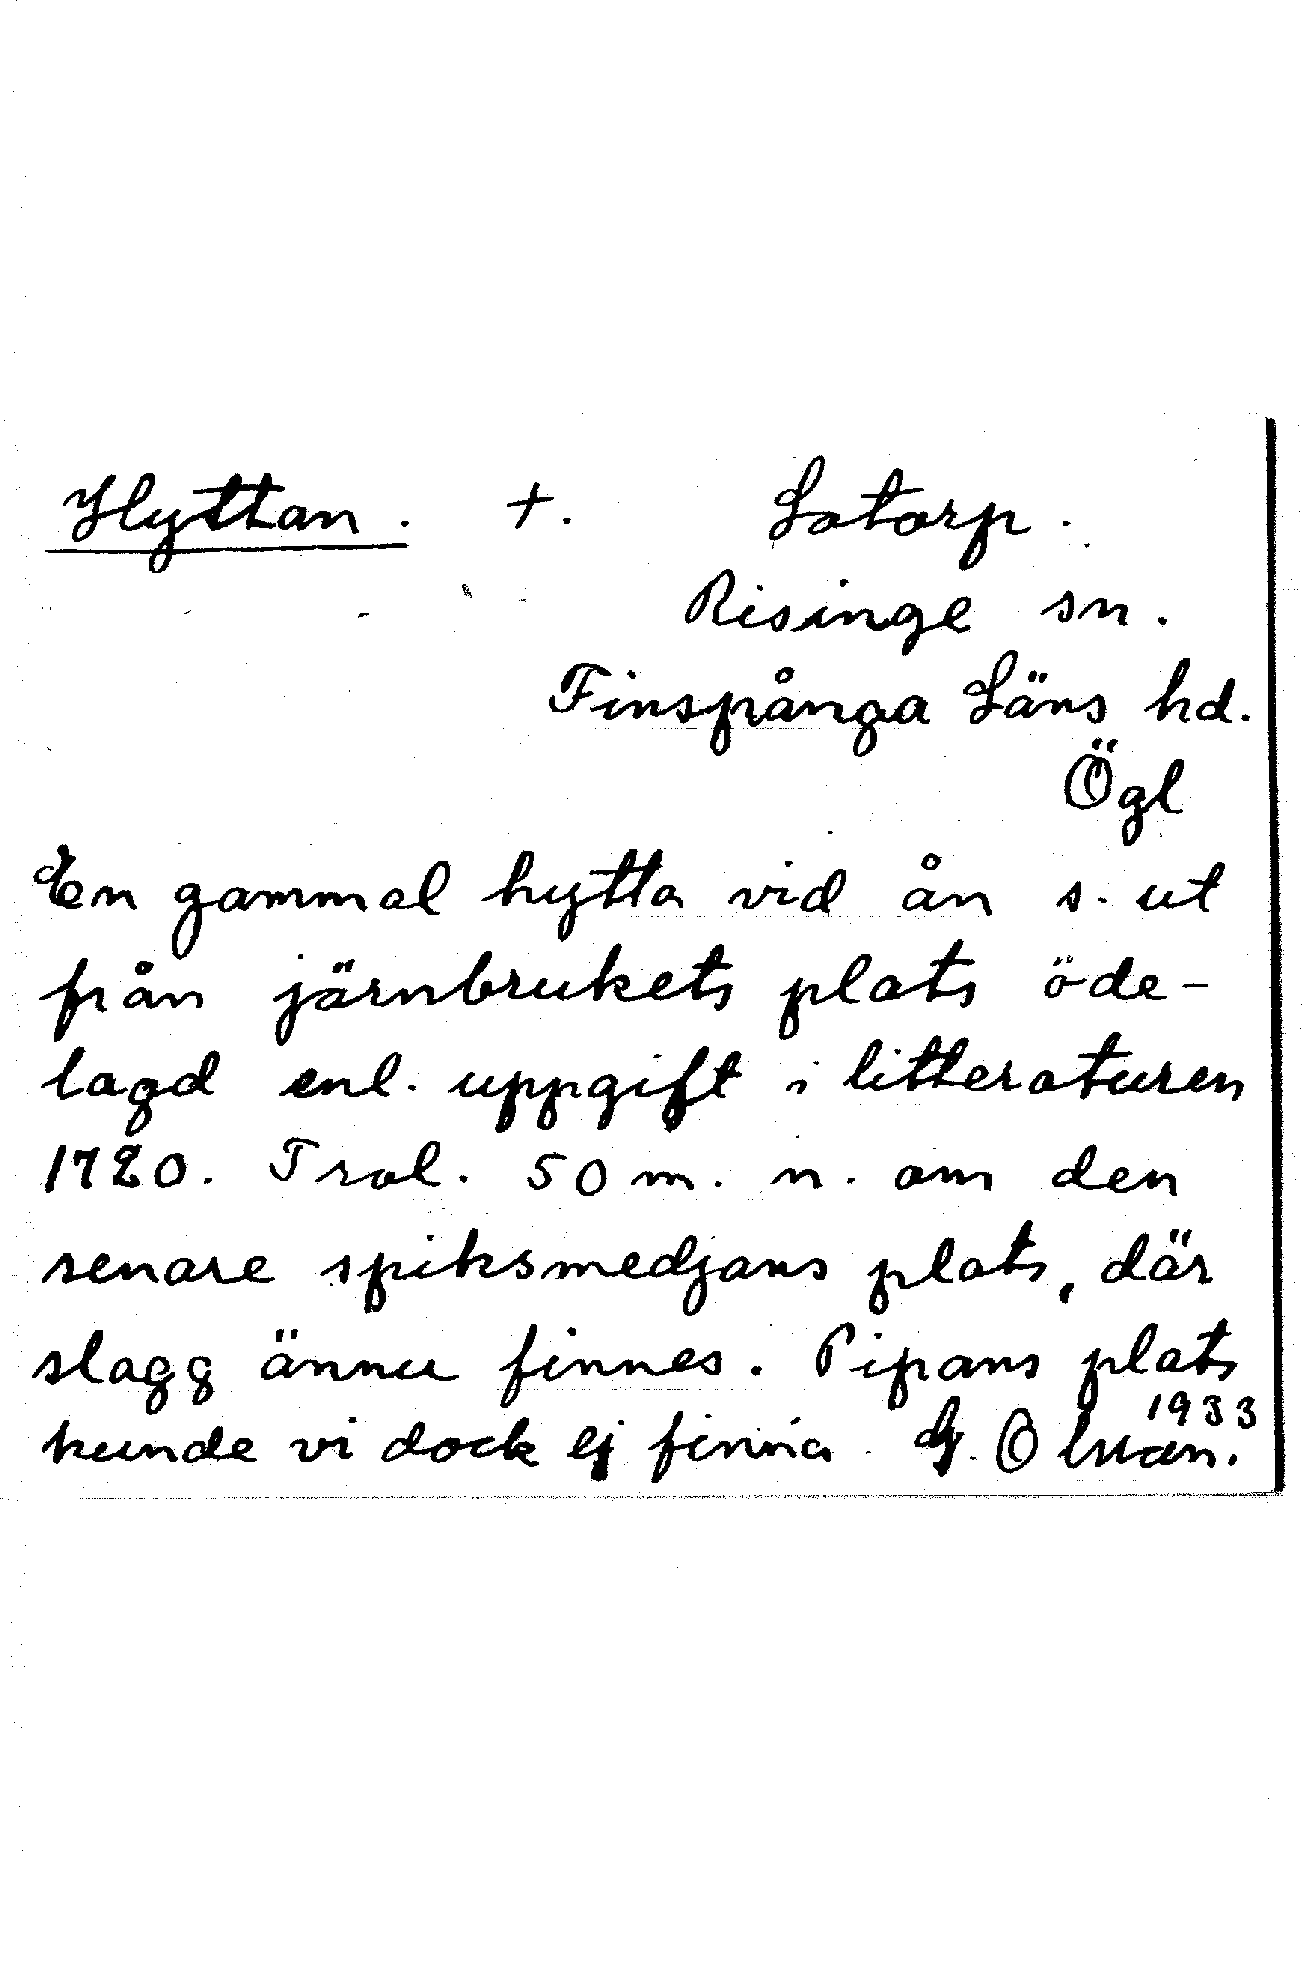 Hyttan. +. Lotorp.
Risinge sn.
Finspånga Läns hd.
Ögl
En gammal hytta vid ån s. ut
från järnbrukets plats öde-
lagd enl. uppgift i litteraturen
1720. Trol. 50 m. n. om den
senare spiksmedjans plats, där
slagg ännu finnes. Pipans plats
1933
kunde vi dock ej finna. G. Olssan.